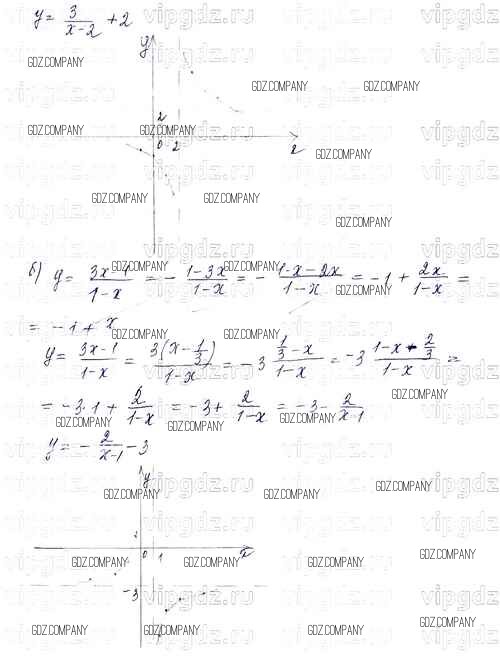 y = 3/(x-2) + 2
y
2
0 2
x
б) y = (3x-1)/(1-x) = - (1-3x)/(1-x) = - (1-x-2x)/(1-x) = -1 + 2x/(1-x) =
= -1 + x
y = (3x-1)/(1-x) = 3(x - 1/3)/(1-x) = -3 (1/3 - x)/(1-x) = -3 (1-x - 2/3)/(1-x) =
= -3·1 + 2/(1-x) = -3 + 2/(1-x) = -3 - 2/(x-1)
y = - 2/(x-1) - 3
y
0 1
x
-3
GDZ.COMPANY
vipgdz.ru